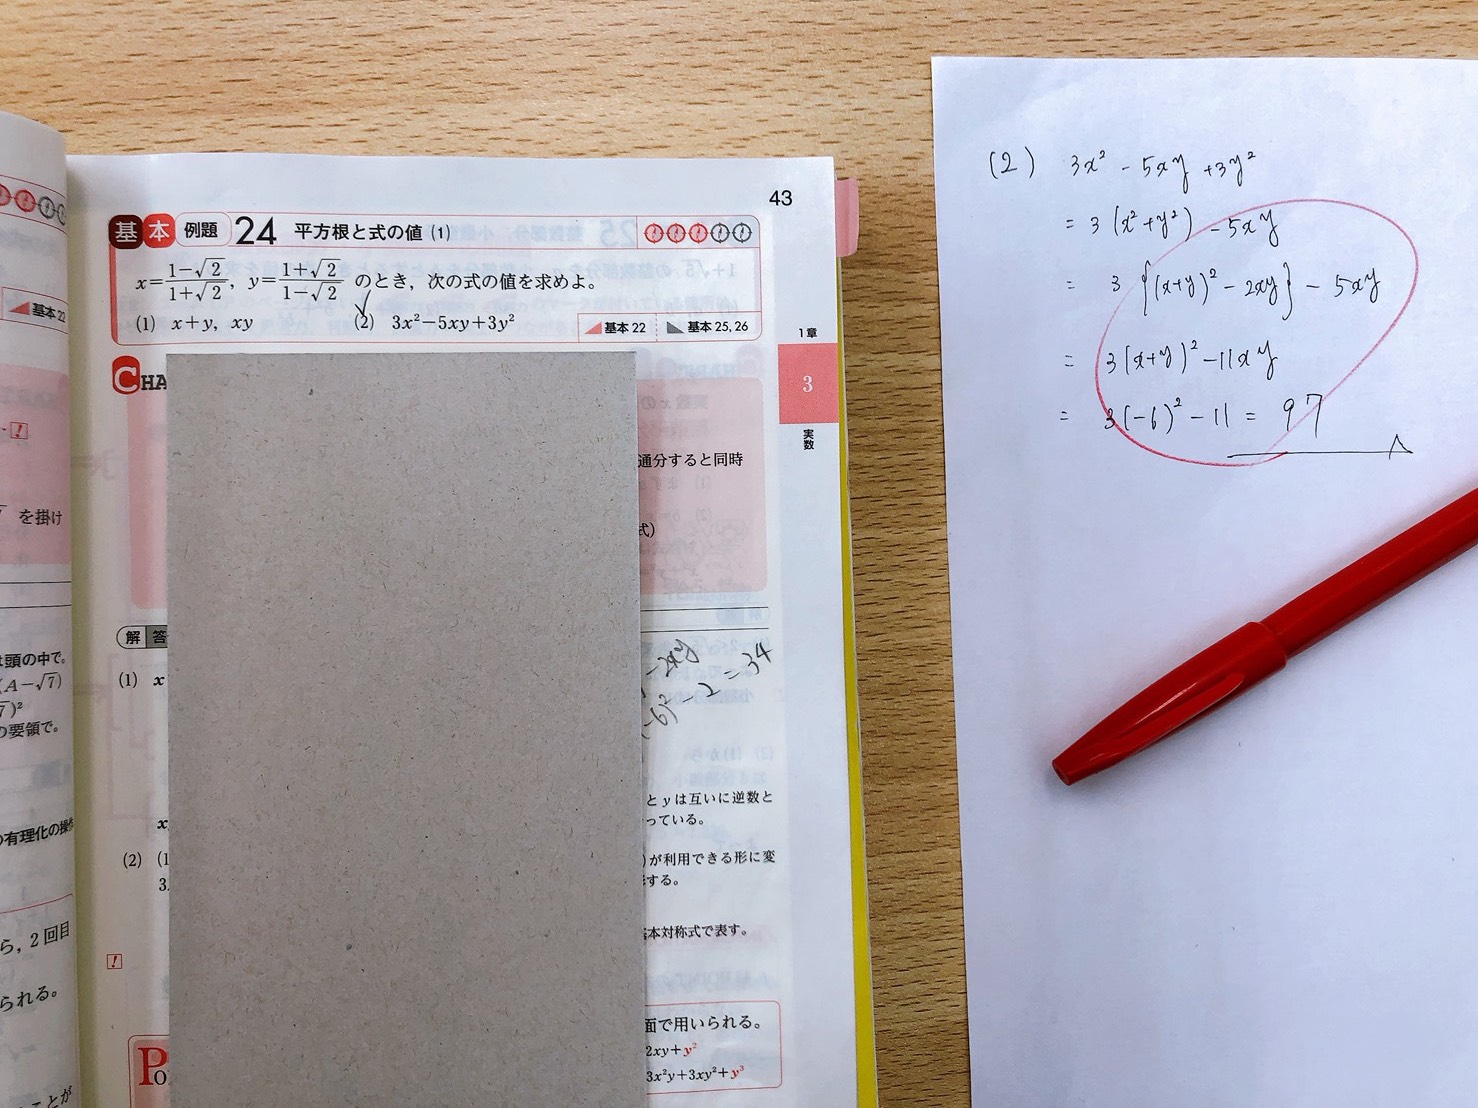 を掛け
は頭の中で。
(A−√7)
の要領で。
の有理化の操作
ら，2回目
られる。
ことが
43
基本 例題 24 平方根と式の値 (1)
x=(1−√2)/(1+√2)，y=(1+√2)/(1−√2) のとき，次の式の値を求めよ。
(1) x+y，xy (2) 3x²−5xy+3y²
基本 22 基本 25, 26
CHA
1章
3
実数
通分すると同時
式)
解答
(1) x
−2xy
(−6)² − 2 = 34
とyは互いに逆数と
っている。
(2) (1
)が利用できる形に変
3
する。
基本対称式で表す。
Po
面で用いられる。
2xy+y²
3x²y+3xy²+y³
(2) 3x² − 5xy + 3y²
= 3(x²+y²) − 5xy
= 3{(x+y)² − 2xy} − 5xy
= 3(x+y)² − 11xy
= 3(−6)² − 11 = 97